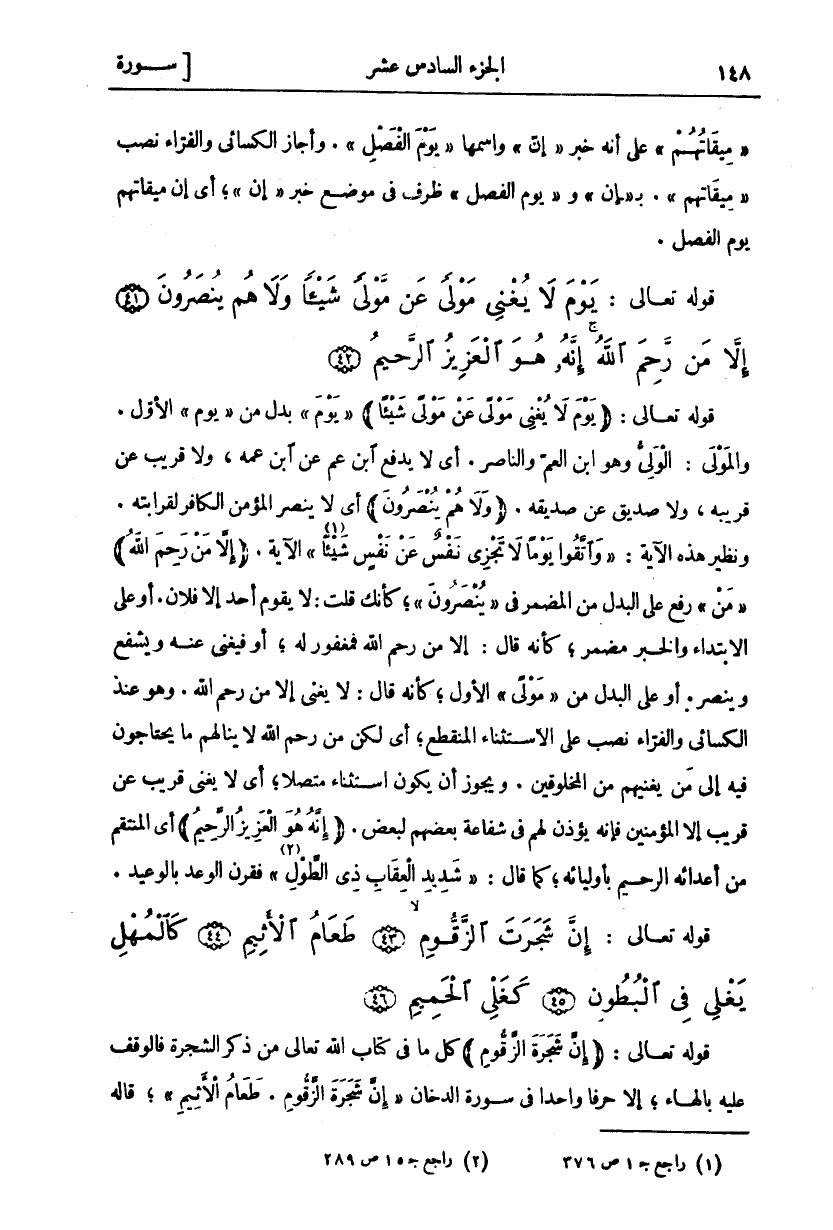 ١٤٨ الجزء السادس عشر [ سـورة
« مِيقَاتُهُمْ » على أنه خبر « إنّ » واسمها « يَوْمَ الْفَصْلِ » . وأجاز الكسائى والفرّاء نصب
« مِيقَاتهم » . بـ«ـإن » و « يوم الفصل » ظرف فى موضع خبر « إن »؛ أى إن ميقاتهم
يوم الفصل .
قوله تعالى : يَوْمَ لَا يُغْنِى مَوْلًى عَن مَّوْلًى شَيْـًٔا وَلَا هُمْ يُنصَرُونَ ﴿٤١﴾
إِلَّا مَن رَّحِمَ ٱللَّهُ ۚ إِنَّهُۥ هُوَ ٱلْعَزِيزُ ٱلرَّحِيمُ ﴿٤٢﴾
قوله تعالى : ﴿ يَوْمَ لَا يُغْنِى مَوْلًى عَنْ مَوْلًى شَيْئًا ﴾ « يَوْمَ » بدل من « يوم » الأوّل .
والمَوْلَى : الْوَلِىُّ وهو ابن العمّ والناصر . أى لا يدفع آبن عم عن آبن عمه ، ولا قريب عن
قريبه ، ولا صديق عن صديقه . ﴿ وَلَا هُمْ يُنْصَرُونَ ﴾ أى لا ينصر المؤمن الكافر لقرابته .
ونظير هذه الآية : « وَٱتَّقُوا يَوْمًا لَا تَجْزِى نَفْسٌ عَنْ نَفْسٍ شَيْئًا (١) » الآية . ﴿ إِلَّا مَنْ رَحِمَ اللَّهُ ﴾
« مَنْ » رفع على البدل من المضمر فى « يُنْصَرُونَ »؛ كأنك قلت : لا يقوم أحد إلا فلان. أوعلى
الابتداء والخبر مضمر ؛ كأنه قال : إلا من رحم الله فمغفور له ؛ أو فيغنى عنه ويشفع
وينصر . أو على البدل من « مَوْلًى » الأول ؛ كأنه قال : لا يغنى إلا من رحم الله . وهو عند
الكسائى والفرّاء نصب على الاستثناء المنقطع ؛ أى لكن من رحم الله لا ينالهم ما يحتاجون
فيه إلى مَن يغنيهم من المخلوقين . ويجوز أن يكون استثناء متصلا؛ أى لا يغنى قريب عن
قريب إلا المؤمنين فإنه يؤذن لهم فى شفاعة بعضهم لبعض . ﴿ إِنَّهُ هُوَ الْعَزِيزُ الرَّحِيمُ ﴾ أى المنتقم
من أعدائه الرحيم بأوليائه ؛ كما قال : « شَدِيدِ الْعِقَابِ ذِى الطَّوْلِ (٢) » فقرن الوعد بالوعيد .
قوله تعالى : إِنَّ شَجَرَتَ ٱلزَّقُّومِ ﴿٤٣﴾ طَعَامُ ٱلْأَثِيمِ ﴿٤٤﴾ كَٱلْمُهْلِ
يَغْلِى فِى ٱلْبُطُونِ ﴿٤٥﴾ كَغَلْىِ ٱلْحَمِيمِ ﴿٤٦﴾
قوله تعالى : ﴿ إِنَّ شَجَرَةَ الزَّقُّومِ ﴾ كل ما فى كتاب الله تعالى من ذكر الشجرة فالوقف
عليه بالهاء ؛ إلا حرفا واحدا فى سورة الدخان « إِنَّ شَجَرَةَ الزَّقُّومِ . طَعَامُ الْأَثِيمِ » ؛ قاله
(١) راجع جـ ١ ص ٣٧٦ (٢) راجع جـ ١٥ ص ٢٨٩